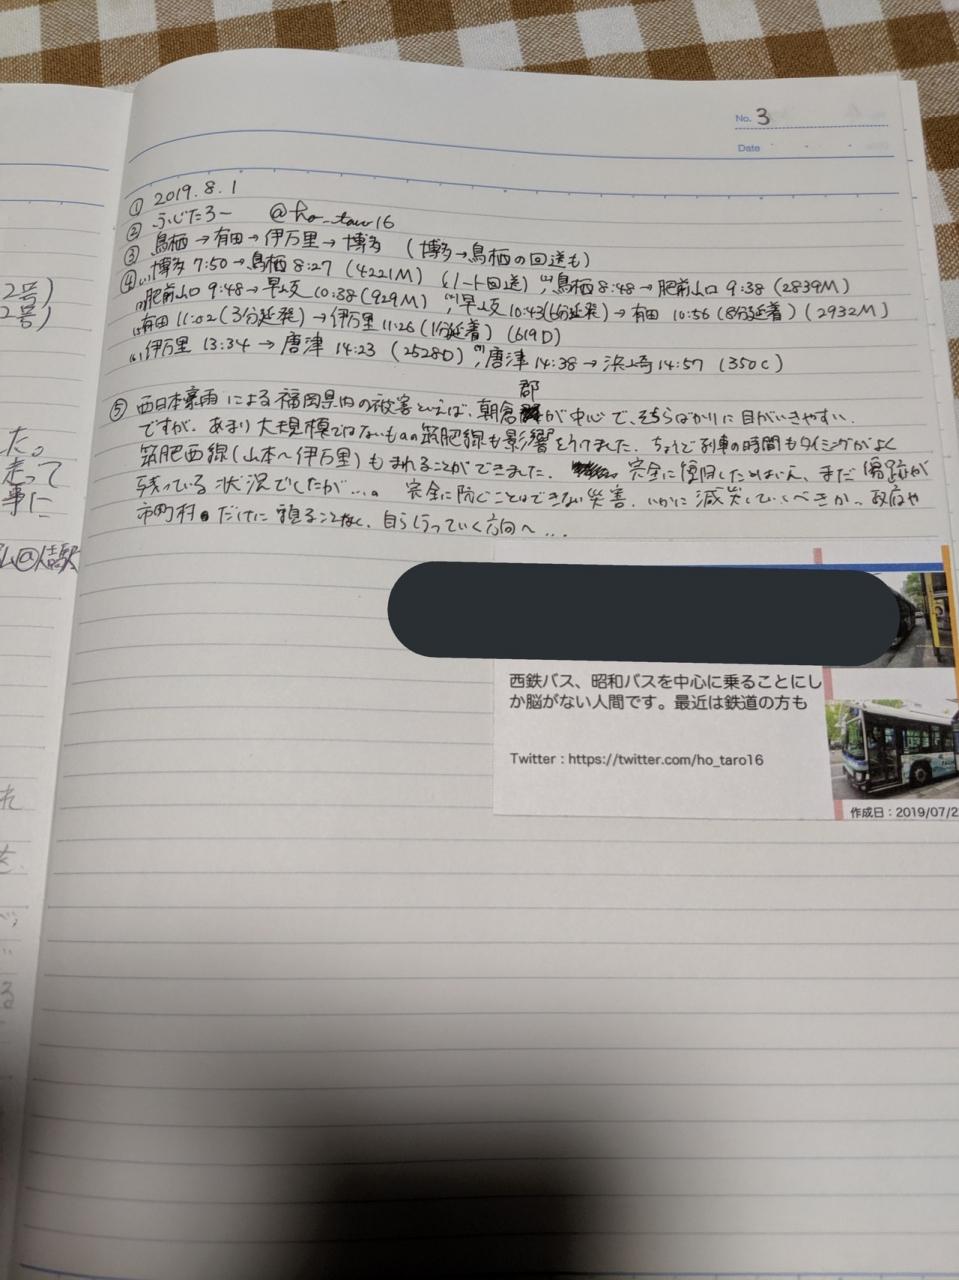 No. 3
Date
① 2019.8.1
② ふじたろー @ho_taro16
③ 鳥栖→有田→伊万里→博多 (博多→鳥栖の回送も)
④ 博多 7:50→鳥栖 8:27 (4221M) (ノート回送) 鳥栖 8:48→肥前山口 9:38 (2839M)
肥前山口 9:48→早岐 10:38 (929M) 早岐 10:43(6分延発)→有田 10:56 (8分延着) (2932M)
有田 11:02 (3分延発)→伊万里 11:26 (1分延着) (619D)
伊万里 13:34→唐津 14:23 (2528D) 唐津 14:38→浜崎 14:57 (350C)
郡
⑤ 西日本豪雨による福岡県内の被害といえば、朝倉が中心で、そちらばかりに目がいきやすい
ですが、あまり大規模ではないものの筑肥線も影響をうけました。ちょうど列車の時間もタイミングがよく
筑肥西線(山本〜伊万里)もまわることができました。完全に復旧したとはいえ、まだ傷跡が
残っている状況でしたが…。完全に防ぐことはできない災害、いかに減災していくべきか、政府や
市町村だけに頼ることなく、自ら行っていく方向へ…
2号)
2号)
た。
走って
事に
れ
を
る
西鉄バス、昭和バスを中心に乗ることにし
か脳がない人間です。最近は鉄道の方も
Twitter : https://twitter.com/ho_taro16
作成日 : 2019/07/2